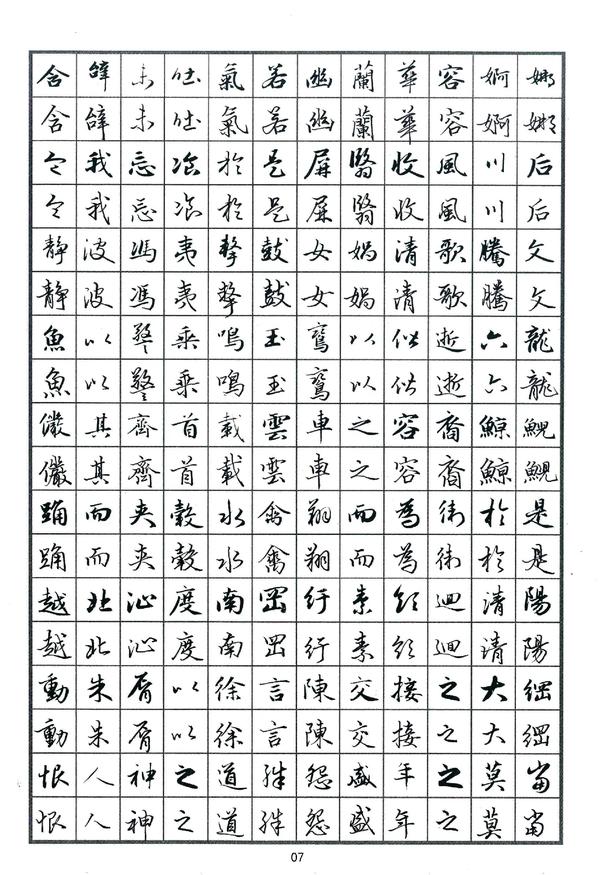 含辭未吐氣若幽蘭華容婀娜
含辭未吐氣若幽蘭華容婀娜
令我忘湌於是屏翳收風川后
令我忘湌於是屏翳收風川后
靜波馮夷擊鼓女媧清歌騰文
靜波馮夷擊鼓女媧清歌騰文
魚以警乘鳴玉鸞以偕逝六龍
魚以警乘鳴玉鸞以偕逝六龍
儼其齊首載雲車之容裔鯨鯢
儼其齊首載雲車之容裔鯨鯢
踊而夾轂水禽翔而為衛於是
踊而夾轂水禽翔而為衛於是
越北沚度南岡紆素領迴清陽
越北沚度南岡紆素領迴清陽
動朱脣以徐言陳交接之大綱
動朱脣以徐言陳交接之大綱
恨人神之道殊怨盛年之莫當
恨人神之道殊怨盛年之莫當
07